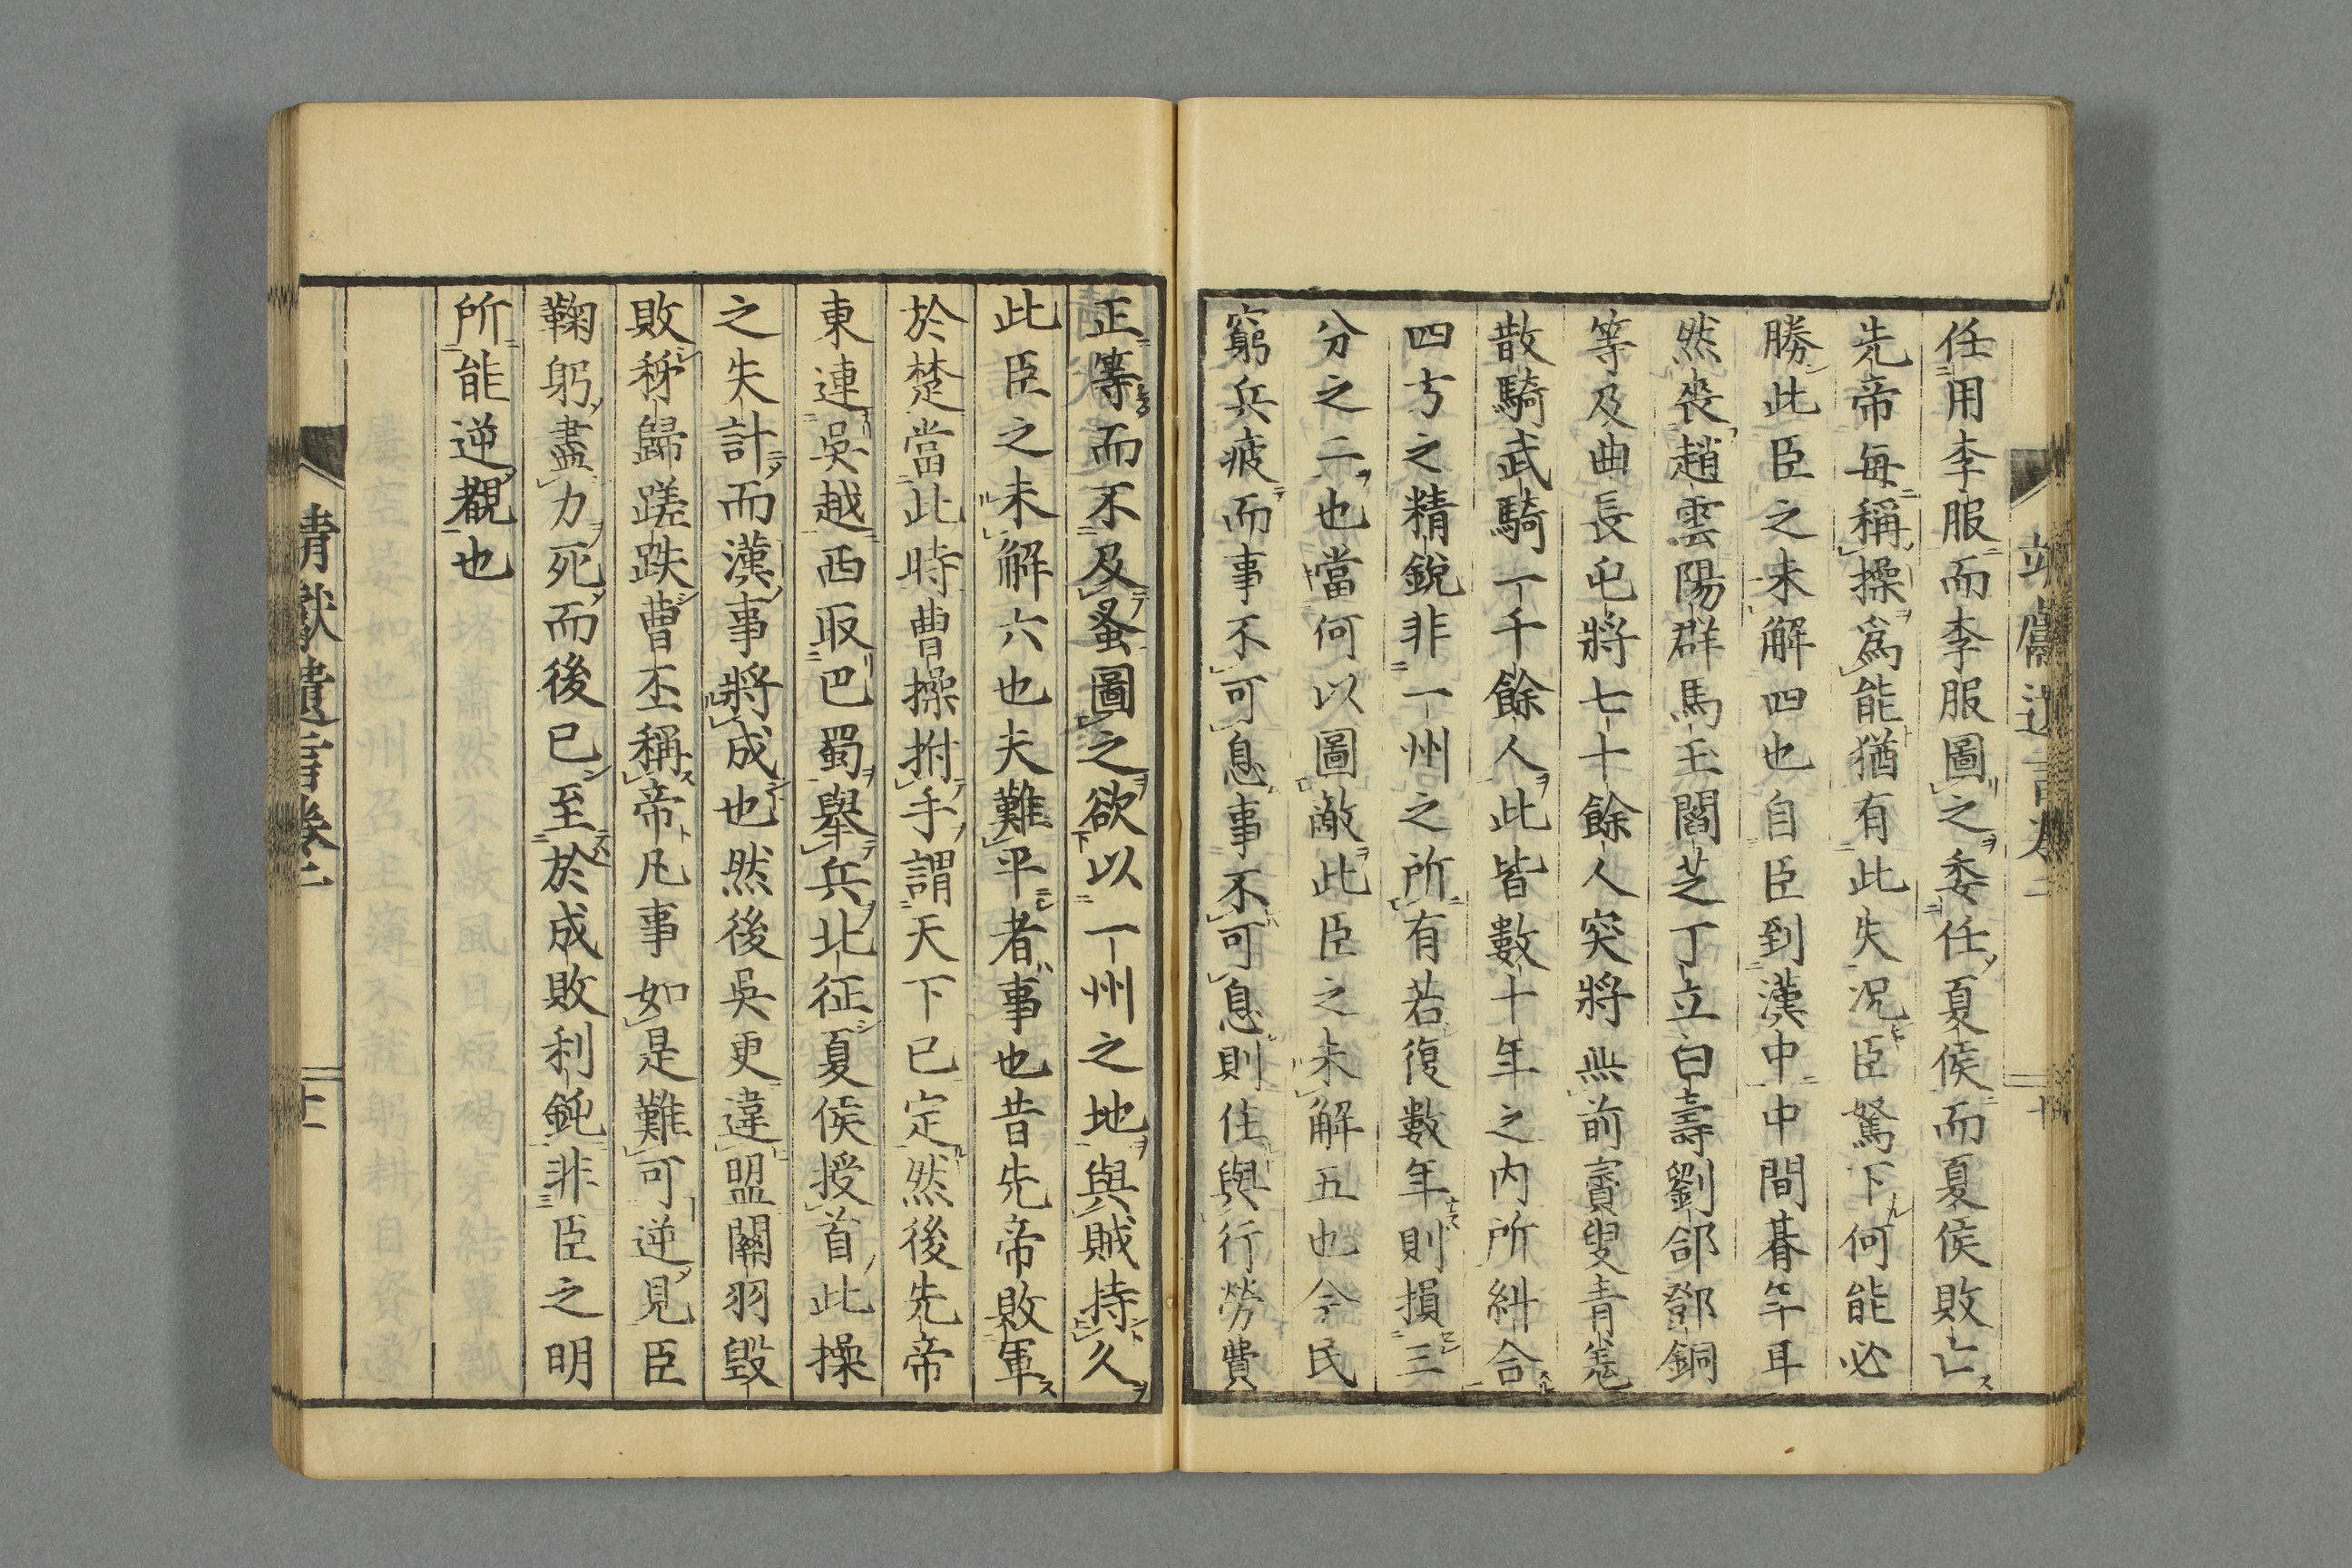 任用李服而李服圖之委任夏侯而夏侯敗亡
先帝每稱操爲能猶有此失况臣駑下何能必
勝此臣之未解四也自臣到漢中中間朞年耳
然喪趙雲陽群馬玉閻芝丁立白壽劉郃鄧銅
等及曲長屯將七十餘人突將無前賨叟青羌
散騎武騎一千餘人此皆數十年之内所糾合
四方之精銳非一州之所有若復數年則損三
分之二也當何以圖敵此臣之未解五也今民
窮兵疲而事不可息事不可息則住與行勞費
正等而不及蚤圖之欲以一州之地與賊持久
此臣之未解六也夫難平者事也昔先帝敗軍
於楚當此時曹操拊手謂天下已定然後先帝
東連吳越西取巴蜀舉兵北征夏侯授首此操
之失計而漢事將成也然後吳更違盟關羽毀
敗秭歸蹉跌曹丕稱帝凡事如是難可逆見臣
鞠躬盡力死而後已至於成敗利鈍非臣之明
所能逆覩也
靖獻遺言卷二